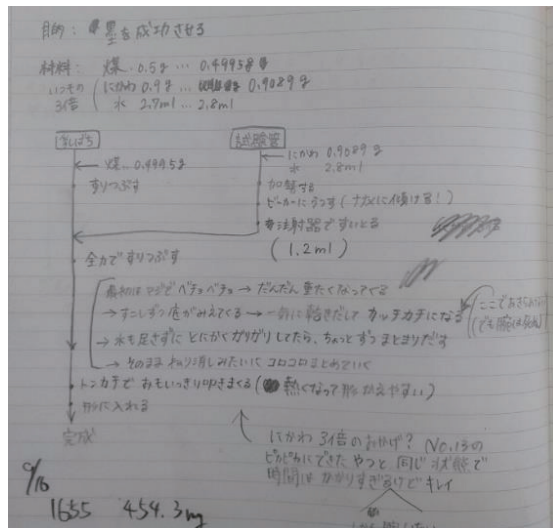 目的: 墨を成功させる
材料: 煤 0.5g ... 0.49958
いつもの3倍
にかわ 0.9g ... 0.9089g
水 2.7ml ... 2.8ml
試験管
煤 0.4995g
すりつぶす
にかわ 0.9089g
水 2.8ml
加熱する
ビーカーにうつす(ナナメに傾ける!)
注射器ですいとる
(1.2ml)
全力ですりつぶす
最初はマジでベチョベチョ → だんだん重たくなってくる
→ すこしずつ底がみえてくる → 一気に乾きだして カッチカチになる
→ 水も足さずに とにかくガリガリしてたら、ちょっとずつまとまりだす
→ そのまま ねり消しみたいに コロコロまとめていく
ここで
トンカチで おもいっきり叩きまくる(熱くなって形かえやすい)
形に入れる
完成
にかわ 3倍のおかげ? No.13の
ピカピカにできた やつと 同じ 状態で
時間は かかりすぎるけど キレイ
9/16
1655 454.3mg